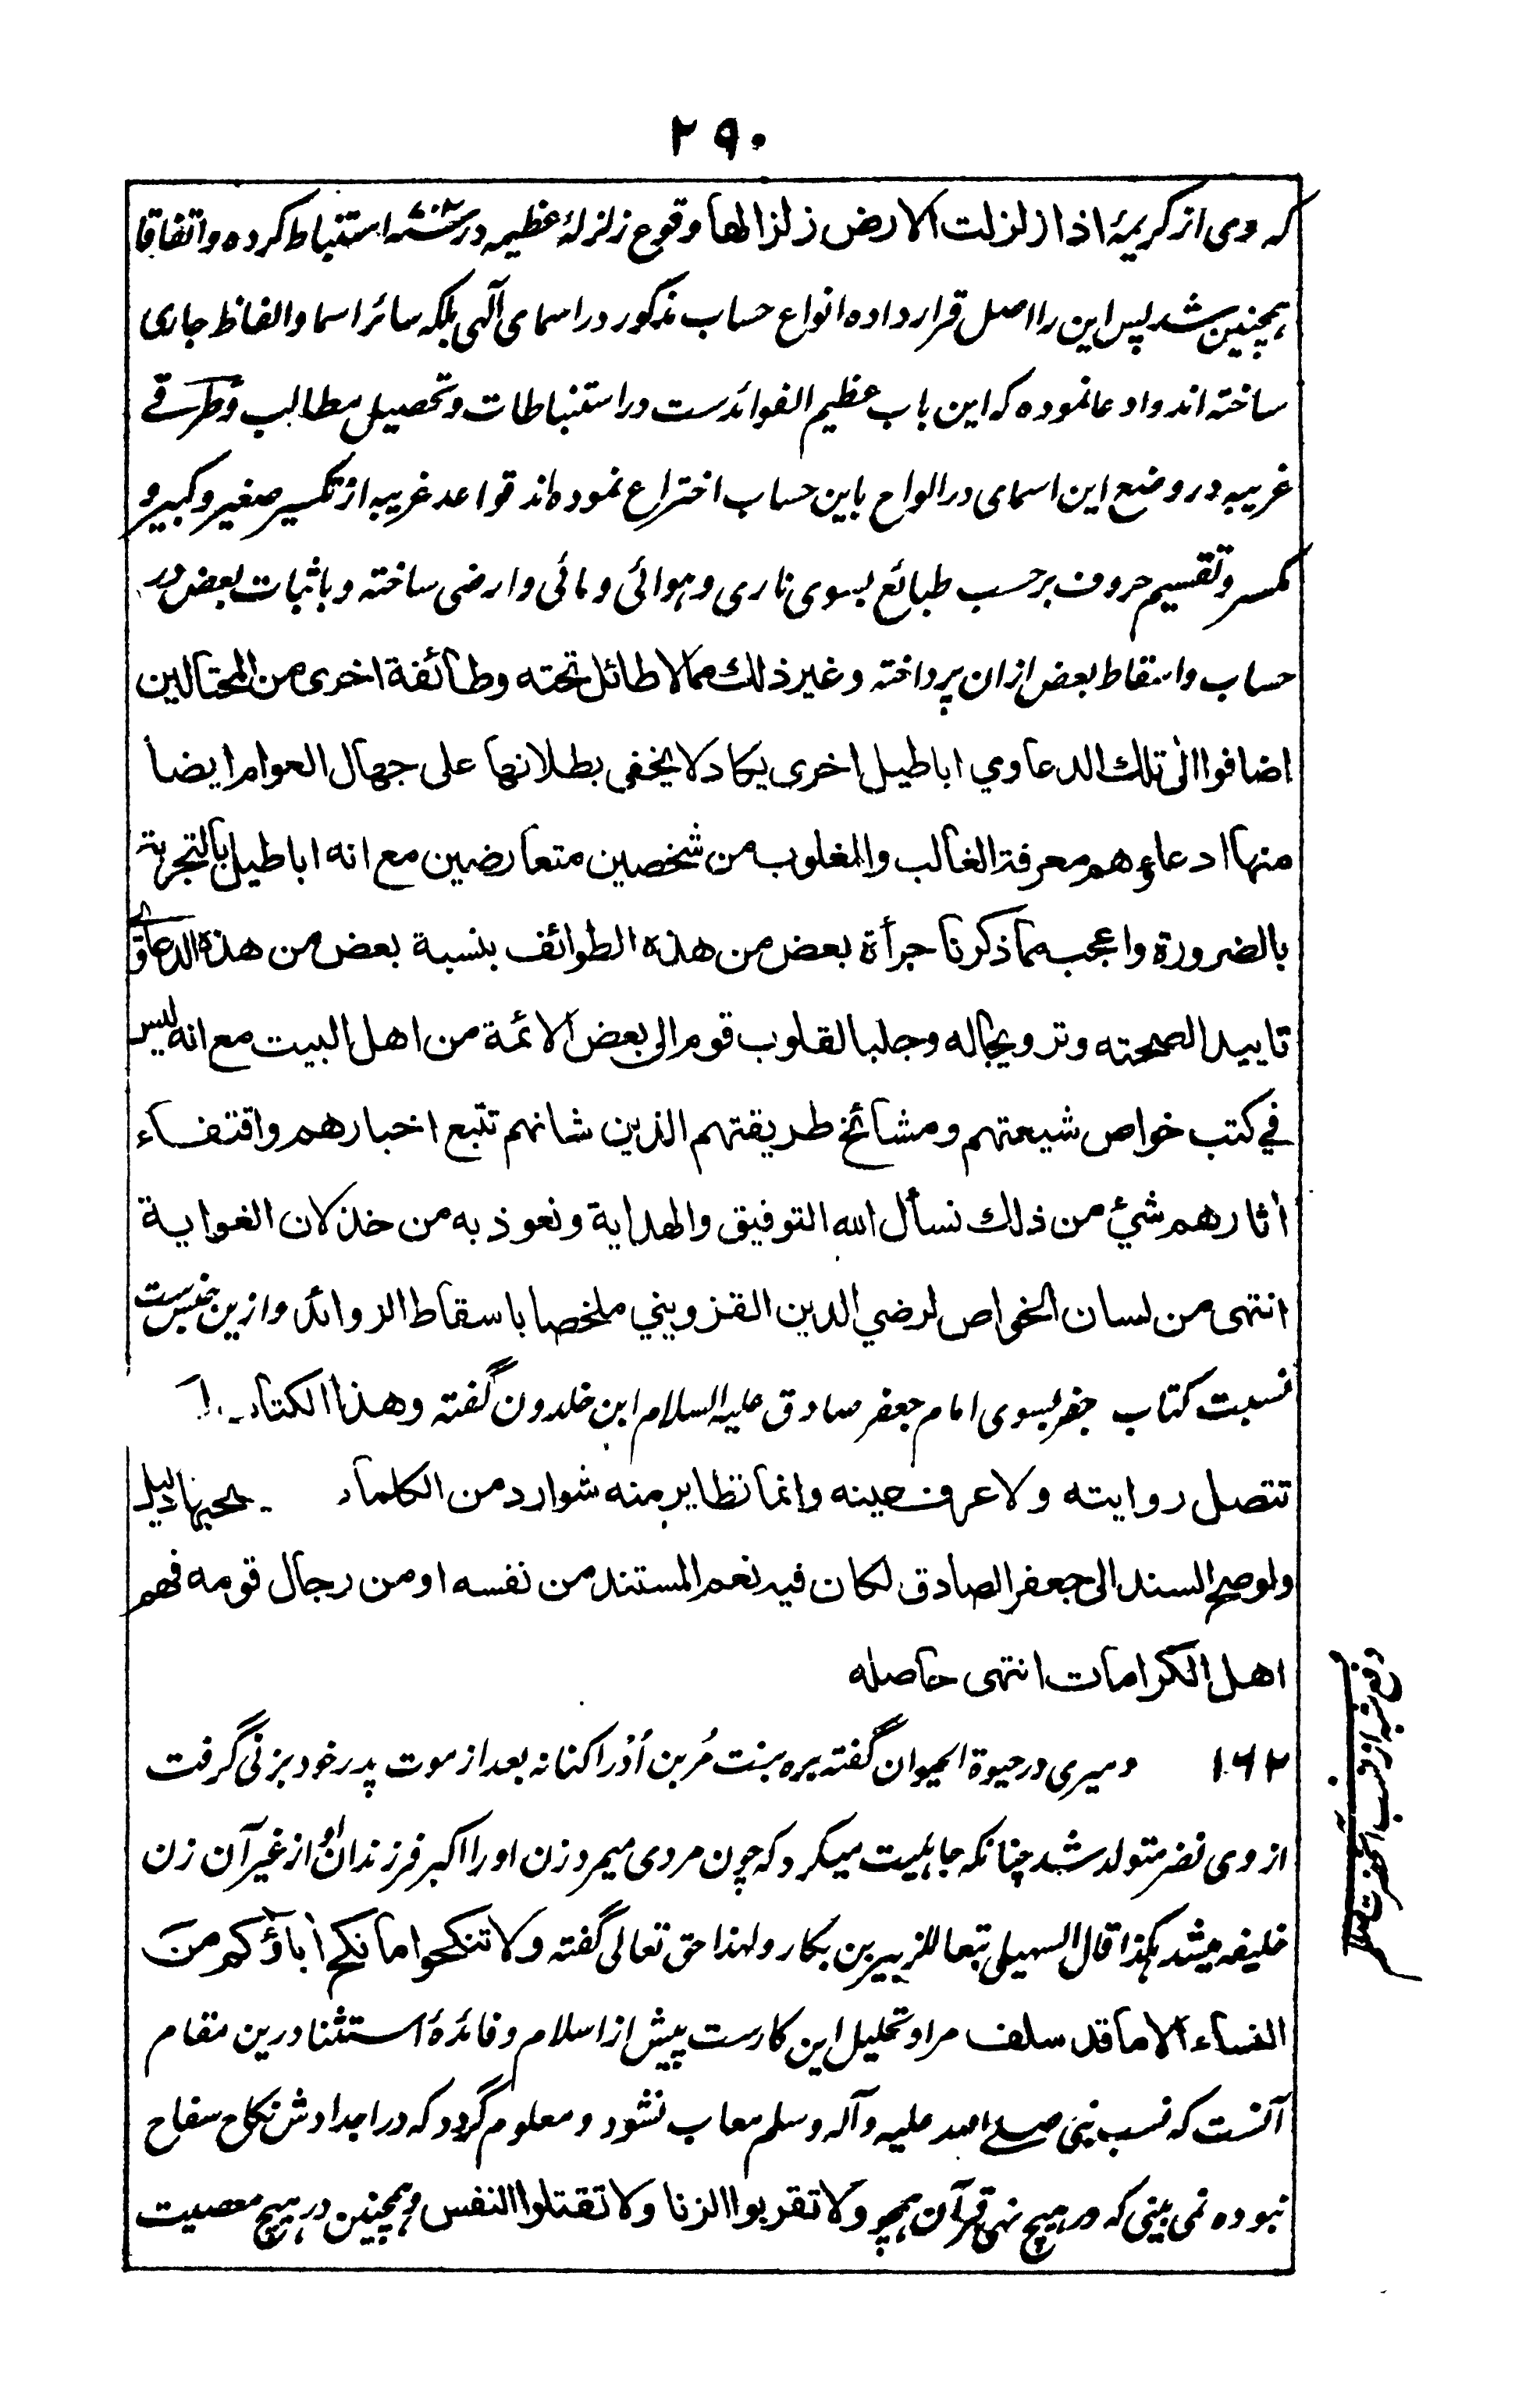 ۲۹۰
که وی از کریمۀ اذا زلزلت الارض زلزالها وقوع زلزلۀ عظیمه در استنباط کرده و اتفاقا
همچنین شد پس این را اصل قرار داده انواع حساب مذکور در اسمای آلهی بلکه سائر اسما و الفاظ جاری
ساخته اند و ادعا نموده که این باب عظیم الفوائدست در استنباطات و تحصیل مطالب و طرقے
غریبه در وضع این اسمای در الواح باین حساب اختراع نموده اند قواعد غریبه از تکسیر صغیر و کبیر و
کسر و تقسیم حروف بر حسب طبائع بسوی ناری و هوائی و مائی و ارضی ساخته و باثبات بعض در
حساب و اسقاط بعض ازان پرداخته و غیر ذلك مما لا طائل تحته وطائفة اخری من المحتالین
اضافوا الی تلك الدعاوي اباطیل اخری یکاد لا یخفی بطلانها علی جهال العوام ایضا
منها ادعاؤهم معرفة الغالب والمغلوب من شخصین متعارضین مع انه اباطیل بالتجربة
بالضرورة واعجب مما ذکرنا جرأة بعض من هذه الطوائف بنسبة بعض من هذه الدعاوی
تاییدا لصحته وترویجا له وجلبا لقلوب قوم الی بعض الائمة من اهل البیت مع انه لیس
في کتب خواص شیعتهم ومشائخ طریقتهم الذین شانهم تتبع اخبارهم واقتفاء
اثارهم شيء من ذلك نسأل الله التوفیق والهدایة ونعوذ به من خذلان الغوایة
انتهی من لسان الخواص لرضي الدین القزویني ملخصا باسقاط الزوائد و ازین جنس ست
نسبت کتاب جفر بسوی امام جعفر صادق علیه السلام ابن خلدون گفته وهذا الکتاب
تتصل روایته ولا عرف عینه وانما تظایر منه شوارد من الکلمات یصحبها دلیل
ولو صح السند الی جعفر الصادق لکان فیه نعم المستند من نفسه او من رجال قومه فهم
اهل الکرامات انتهی حاصله
۱۶۲ دمیری در حیوة الحیوان گفته بره بنت مُر بن اُدّ را کنانه بعد از موت پدر خود بزنی گرفت
از وی نضر متولد شد چنانکه جاهلیت میکرد که چون مردی میمرد زن او را اکبر فرزندان او از غیر آن زن
خلیفه میشد هکذا قال السهیلی تبعا للزبیر بن بکار و لهذا حق تعالی گفته ولا تنکحوا ما نکح اٰباؤکم من
النساء الا ما قد سلف مراد تحلیل این کارست پیش از اسلام و فائدۀ استثنا درین مقام
آنست که نسب نبی صلے الله علیه و آله و سلم معاب نشود و معلوم گردد که در اجدادش نکاح سفاح
نبوده نمی بینی که در هیچ نهی قرآن همچو ولا تقربوا الزنا ولا تقتلوا النفس و همچنین در هیچ معصیت
دفع شبه از نسب آنحضرت صلعم